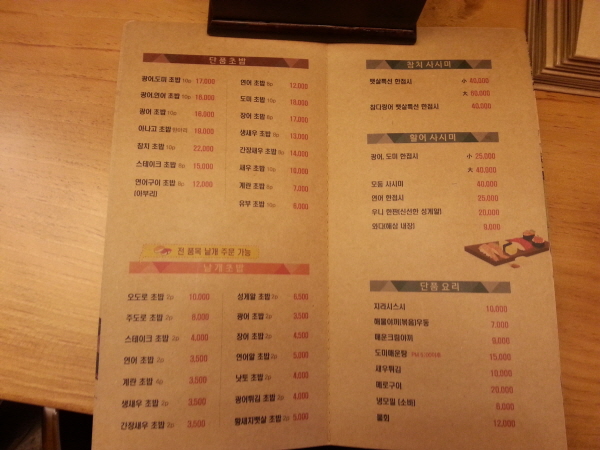 단품초밥
광어,도미 초밥 10p 17,000
광어,연어 초밥 10p 16,000
광어 초밥 10p 16,000
아나고 초밥 18,000
참치 초밥 10p 22,000
스테이크 초밥 8p 15,000
연어구이 초밥 8p 12,000
(아부리)
연어 초밥 8p 12,000
도미 초밥 10p 18,000
장어 초밥 8p 17,000
생새우 초밥 8p 13,000
간장새우 초밥 8p 14,000
새우 초밥 10p 16,000
계란 초밥 8p 7,000
유부 초밥 10p 8,000
전 품목 낱개 주문 가능
낱개초밥
오도로 초밥 2p 10,000
주도로 초밥 2p 8,000
스테이크 초밥 2p 4,000
연어 초밥 2p 3,500
계란 초밥 4p 3,500
생새우 초밥 2p 3,500
간장새우 초밥 2p 3,500
성게알 초밥 2p 6,500
광어 초밥 2p 3,500
장어 초밥 2p 4,500
연어알 초밥 2p 5,500
낫토 초밥 2p 4,000
광어튀김 초밥 2p 4,000
활새치뱃살 초밥 2p 5,500
참치 사시미
뱃살특선 한접시 小 40,000
大 60,000
참다랑어 뱃살특선 한접시 40,000
활어 사시미
광어, 도미 한접시 小 25,000
大 40,000
모듬 사시미 40,000
연어 한접시 20,000
우니 한판(신선한 성게알) 20,000
와다(해삼 내장) 9,000
단품 요리
지리스시 10,000
해물야끼(볶음)우동 7,000
매운크림야끼 9,000
도미매운탕 15,000
새우튀김 10,000
메로구이 20,000
냉모밀 (소바) 6,000
물회 12,000